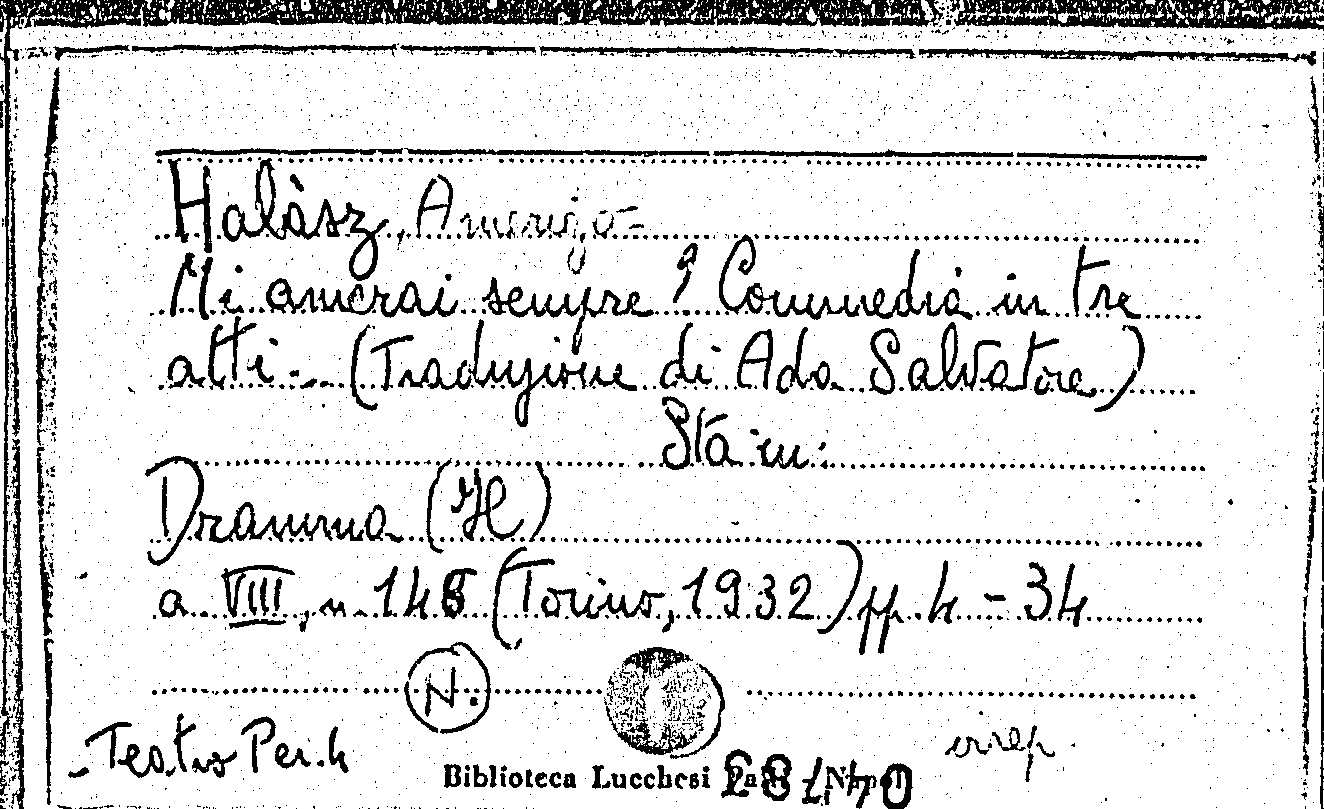 Halàsz, Amerigo-
Mi amerai sempre? Commedia in tre
atti - (Traduzione di Ada Salvatore)
Sta in:
Dramma (Il)
a. VIII, n. 148 (Torino, 1932) pp. 4 - 34
N.
- Teatro Per. 4
irrep.
Biblioteca Lucchesi